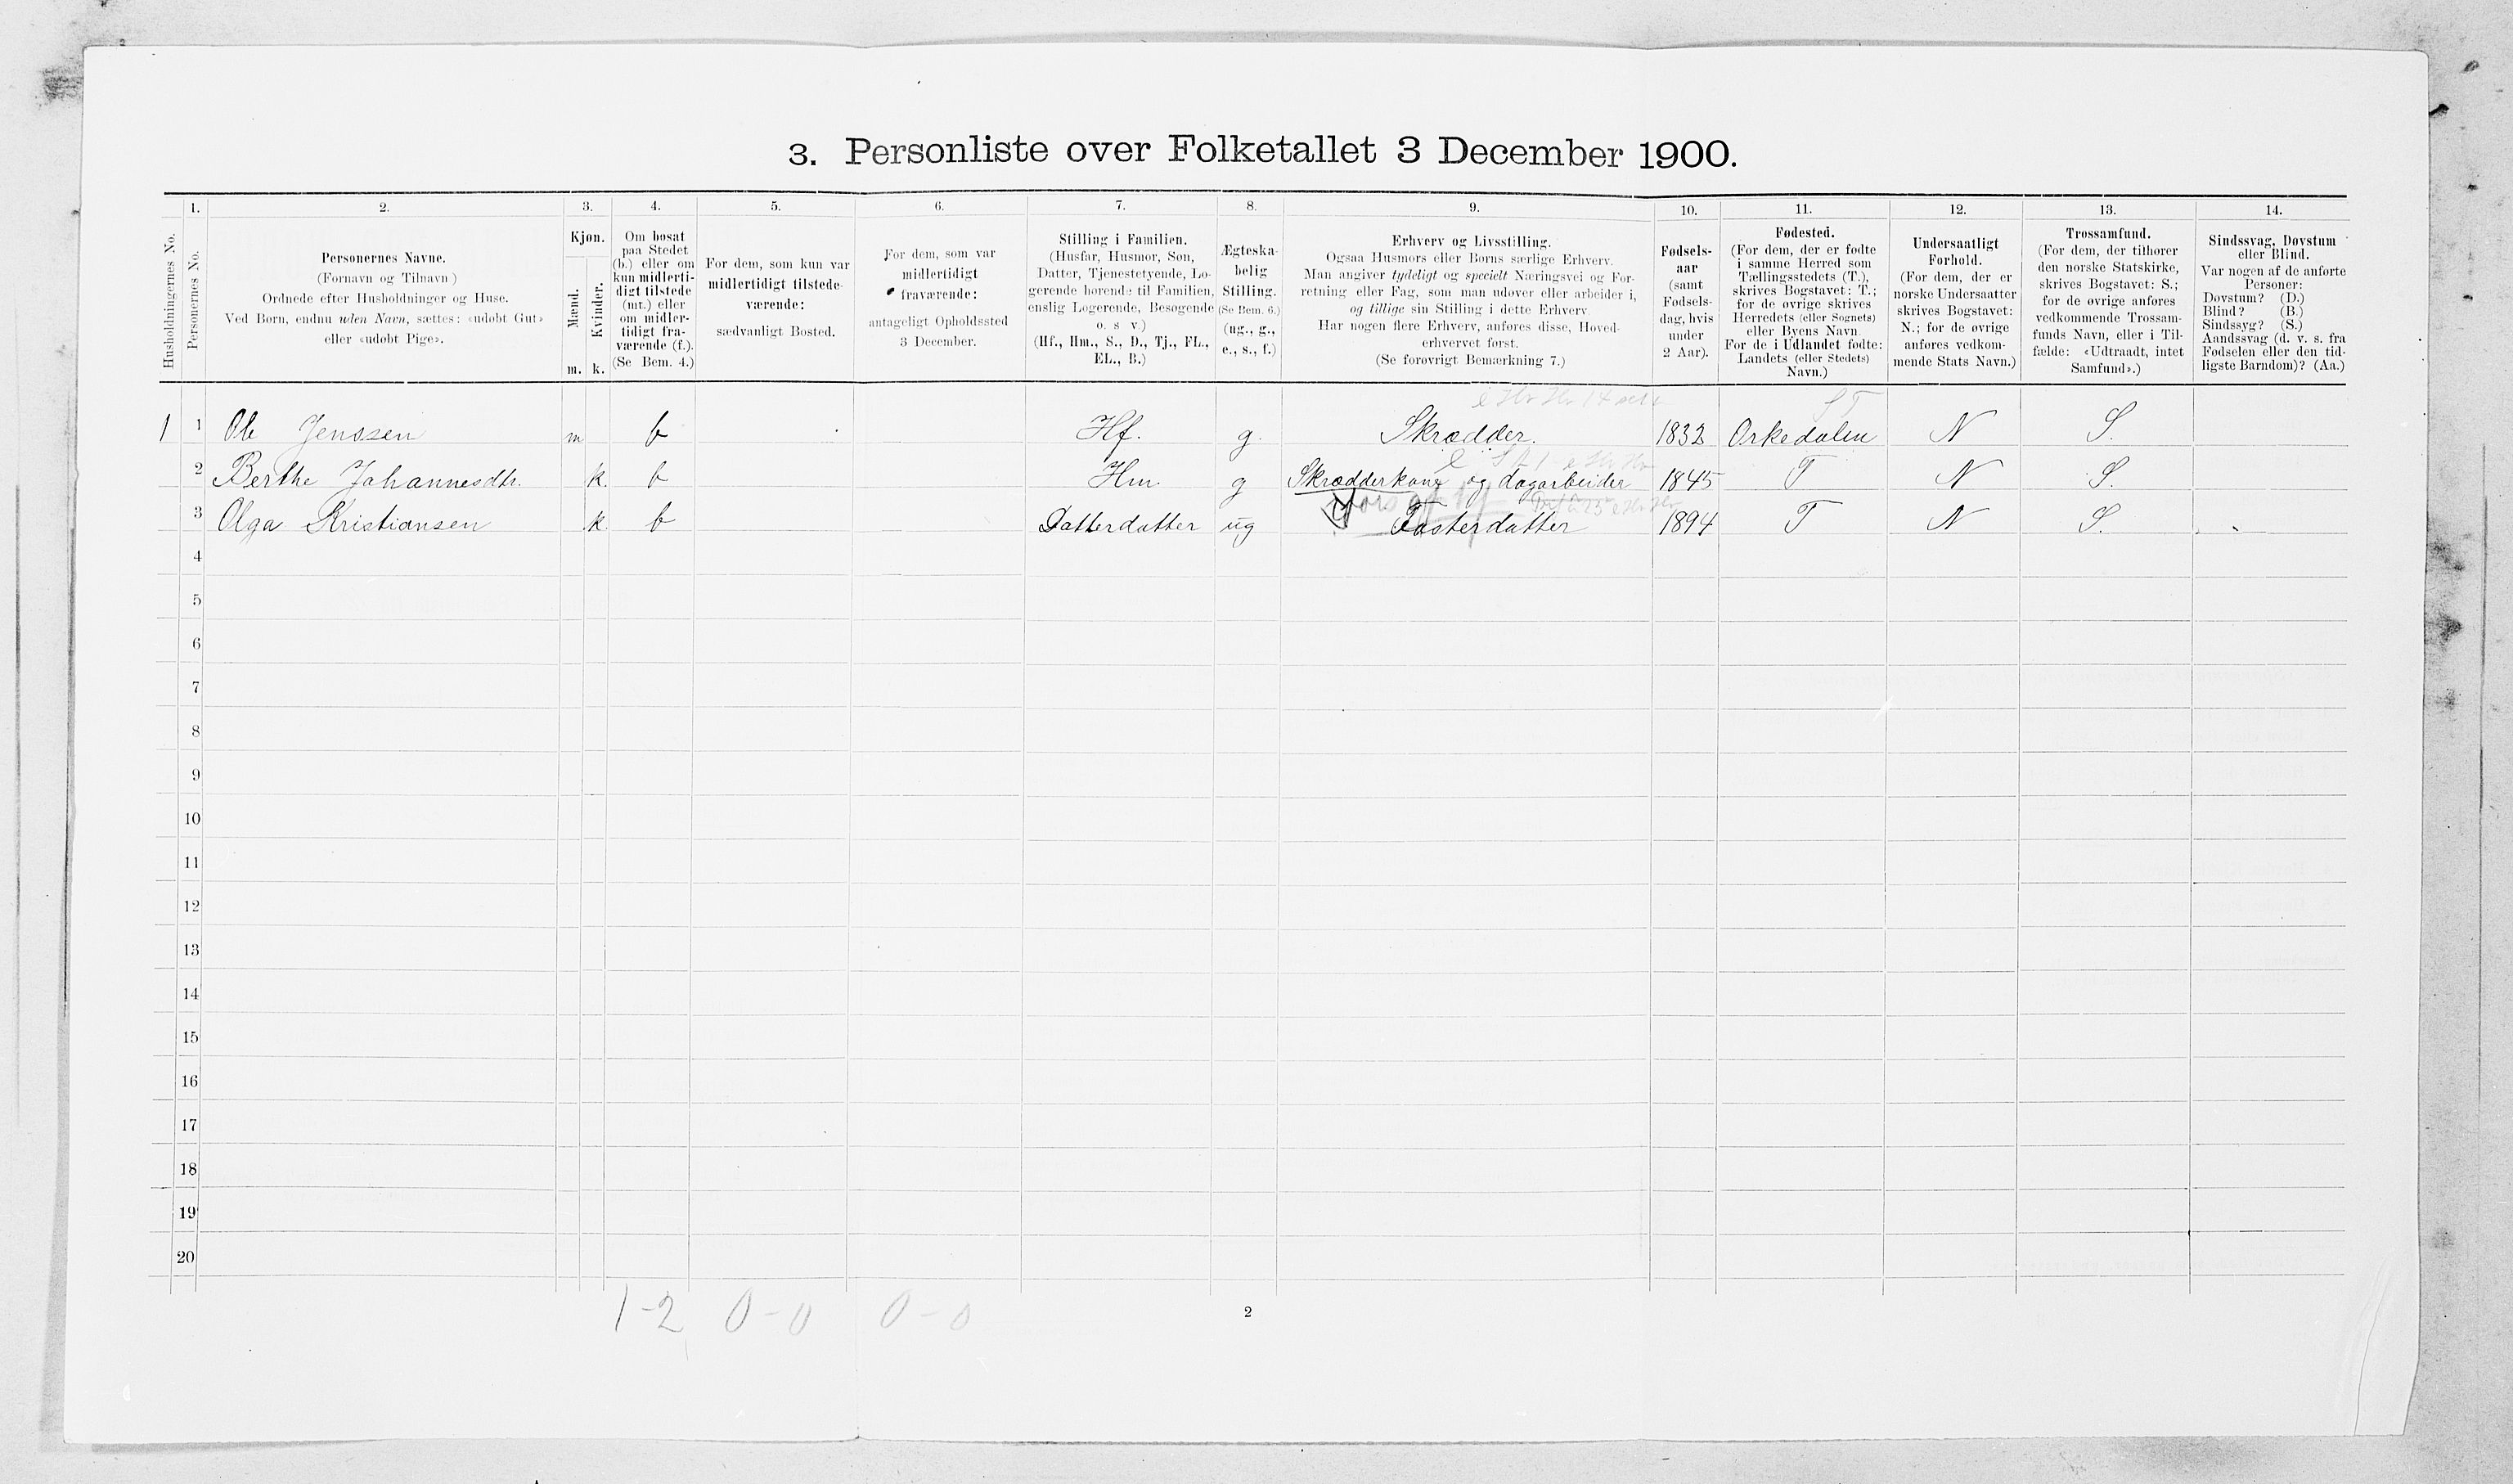 3. Personliste over Folketallet 3 December 1900.
1. 2. 3. 4. 5. 6. 7. 8. 9. 10. 11. 12. 13. 14.
Husholdningernes No.
Personernes No.
Personernes Navne.
(Fornavn og Tilnavn)
Ordnede efter Husholdninger og Huse.
Ved Børn, endnu uden Navn, sættes: «udøbt Gut»
eller «udøbt Pige».
Kjøn.
Mænd.
Kvinder.
m. k.
Om bosat
paa Stedet
(b.) eller om
kun midlerti-
digt tilstede
(mt.) eller
om midler-
tidigt fra-
værende (f.).
(Se Bem. 4.)
For dem, som kun var
midlertidigt tilstede-
værende:
sædvanligt Bosted.
For dem, som var
midlertidigt
fraværende:
antageligt Opholdssted
3 December.
Stilling i Familien.
(Husfar, Husmor, Søn,
Datter, Tjenestetyende, Lo-
gerende hørende til Familien,
enslig Logerende, Besøgende
o. s v.)
(Hf., Hm., S., D., Tj., FL.,
EL., B.)
Ægteska-
belig
Stilling.
(Se Bem. 6.)
(ug., g.,
e., s., f.)
Erhverv og Livsstilling.
Ogsaa Husmors eller Børns særlige Erhverv.
Man angiver tydeligt og specielt Næringsvei og For-
retning eller Fag, som man udøver eller arbeider i,
og tillige sin Stilling i dette Erhverv.
Har nogen flere Erhverv, anføres disse, Hoved-
erhvervet først.
(Se forøvrigt Bemærkning 7.)
Fødsels-
aar
(samt
Fødsels-
dag, hvis
under
2 Aar).
Fødested.
(For dem, der er fødte
i samme Herred som
Tællingsstedets (T.),
skrives Bogstavet: T.;
for de øvrige skrives
Herredets (eller Sognets)
eller Byens Navn.
For de i Udlandet fødte:
Landets (eller Stedets)
Navn.)
Undersaatligt
Forhold.
(For dem, der er
norske Undersaatter
skrives Bogstavet:
N.; for de øvrige
anføres vedkom-
mende Stats Navn.)
Trossamfund.
(For dem, der tilhører
den norske Statskirke,
skrives Bogstavet: S.;
for de øvrige anføres
vedkommende Trossam-
funds Navn, eller i Til-
fælde: «Udtraadt, intet
Samfund».)
Sindssvag, Døvstum
eller Blind.
Var nogen af de anførte
Personer:
Døvstum? (D.)
Blind? (B.)
Sindssyg? (S.)
Aandssvag (d. v. s. fra
Fødselen eller den tid-
ligste Barndom)? (Aa.)
1 1 Ole Jenssen m b Hf. g. Skrædder. 1832 Orkedalen N S.
2 Berthe Johannesdtr. k. b Hm. g Skrædderkone og dagarbeider 1845 T N S.
3 Olga Kristiansen k b Datterdatter ug Fosterdatter 1894 T N S.
4
5
6
7
8
9
10
11
12
13
14
15
16
17
18
19
20
1-2 0-0 0-0
2